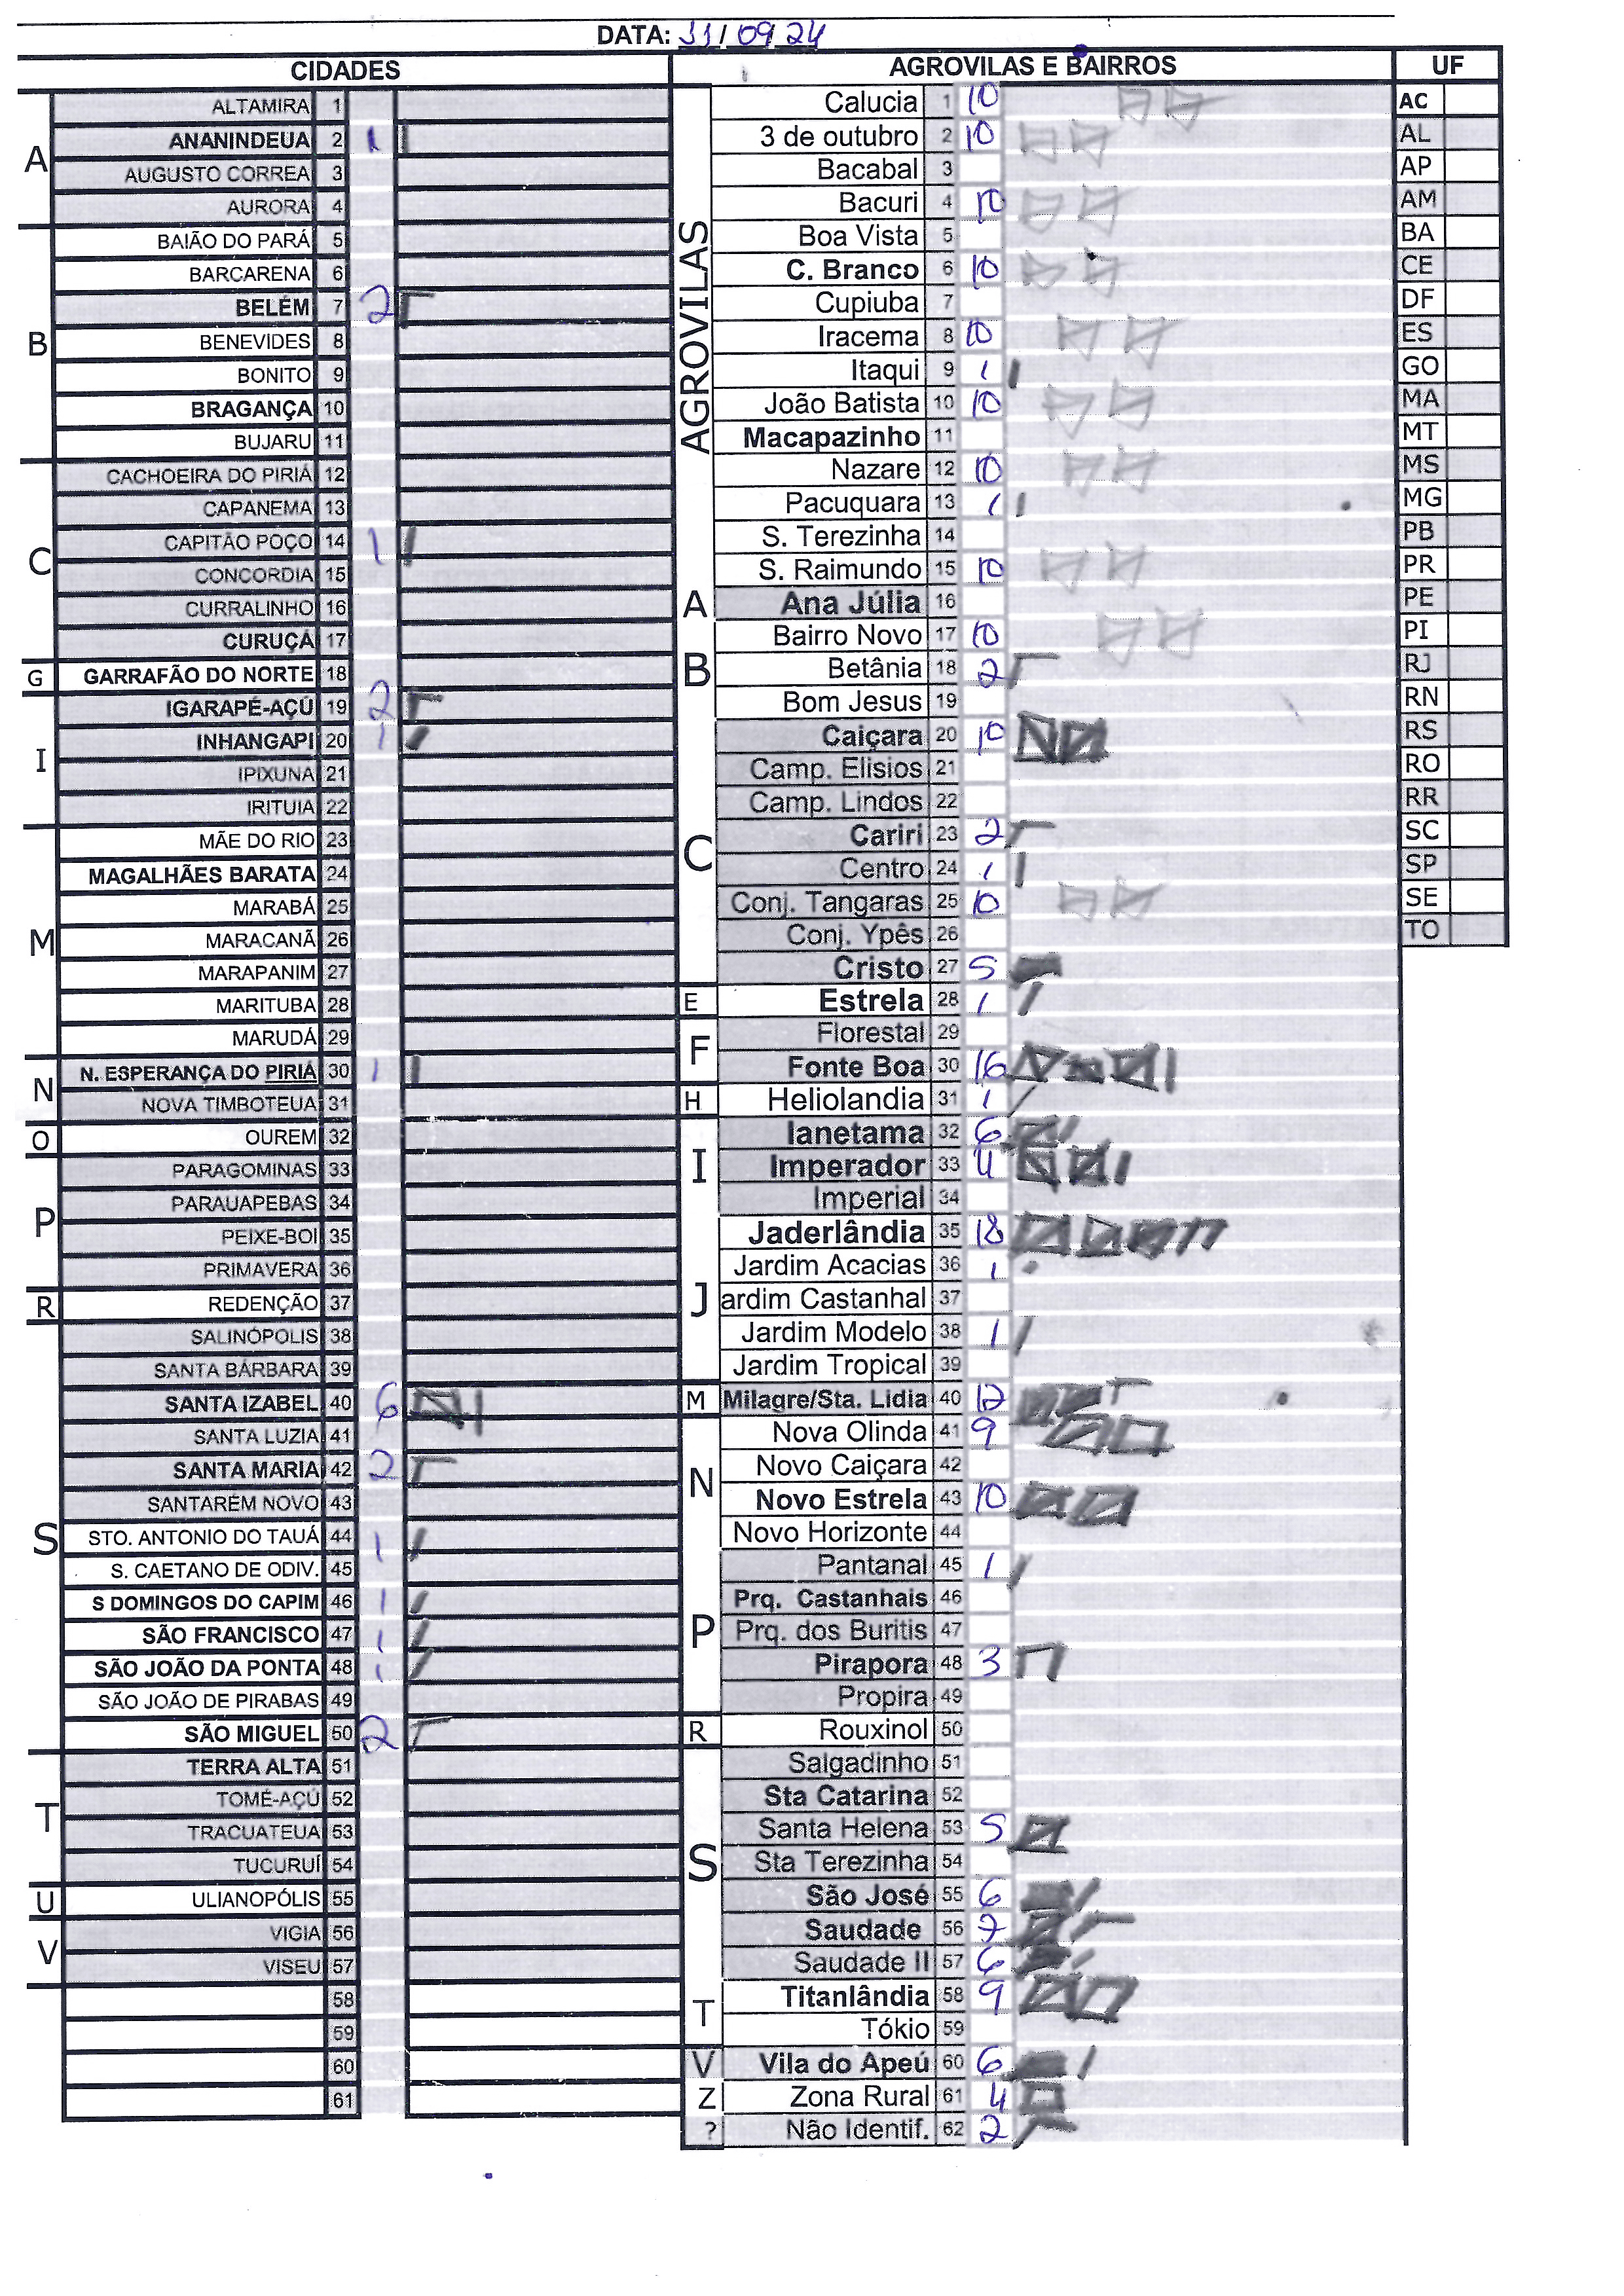 DATA: 11/09/24
CIDADES
A
ALTAMIRA 1
ANANINDEUA 2 1
AUGUSTO CORREA 3
AURORA 4
B
BAIÃO DO PARÁ 5
BARCARENA 6
BELÉM 7 2
BENEVIDES 8
BONITO 9
BRAGANÇA 10
BUJARU 11
C
CACHOEIRA DO PIRIÁ 12
CAPANEMA 13
CAPITÃO POÇO 14 1
CONCORDIA 15
CURRALINHO 16
CURUÇÁ 17
G
GARRAFÃO DO NORTE 18
I
IGARAPÉ-AÇÚ 19 2
INHANGAPI 20 1
IPIXUNA 21
IRITUIA 22
M
MÃE DO RIO 23
MAGALHÃES BARATA 24
MARABÁ 25
MARACANÃ 26
MARAPANIM 27
MARITUBA 28
MARUDÁ 29
N
N. ESPERANÇA DO PIRIÁ 30 1
NOVA TIMBOTEUA 31
O
OUREM 32
P
PARAGOMINAS 33
PARAUAPEBAS 34
PEIXE-BOI 35
PRIMAVERA 36
R
REDENÇÃO 37
S
SALINÓPOLIS 38
SANTA BÁRBARA 39
SANTA IZABEL 40 6
SANTA LUZIA 41
SANTA MARIA 42 2
SANTARÉM NOVO 43
STO. ANTONIO DO TAUÁ 44 1
S. CAETANO DE ODIV. 45
S DOMINGOS DO CAPIM 46 1
SÃO FRANCISCO 47 1
SÃO JOÃO DA PONTA 48 1
SÃO JOÃO DE PIRABAS 49
SÃO MIGUEL 50 2
T
TERRA ALTA 51
TOMÉ-AÇÚ 52
TRACUATEUA 53
TUCURUÍ 54
U
ULIANOPÓLIS 55
V
VIGIA 56
VISEU 57
58
59
60
61
AGROVILAS E BAIRROS
AGROVILAS
Calucia 1 10
3 de outubro 2 10
Bacabal 3
Bacuri 4 10
Boa Vista 5
C. Branco 6 10
Cupiuba 7
Iracema 8 10
Itaqui 9 1
João Batista 10 10
Macapazinho 11
Nazare 12 10
Pacuquara 13 1
S. Terezinha 14
S. Raimundo 15 10
A
Ana Júlia 16
B
Bairro Novo 17 10
Betânia 18 2
Bom Jesus 19
C
Caiçara 20 10
Camp. Elisios 21
Camp. Lindos 22
Cariri 23 2
Centro 24 1
Conj. Tangaras 25 10
Conj. Ypês 26
Cristo 27 5
E
Estrela 28 1
F
Florestal 29
Fonte Boa 30 16
H
Heliolandia 31 1
I
Ianetama 32 6
Imperador 33 4
Imperial 34
J
Jaderlândia 35 18
Jardim Acacias 36 1
ardim Castanhal 37
Jardim Modelo 38 1
Jardim Tropical 39
M
Milagre/Sta. Lidia 40 12
N
Nova Olinda 41 9
Novo Caiçara 42
Novo Estrela 43 10
Novo Horizonte 44
P
Pantanal 45 1
Prq. Castanhais 46
Prq. dos Buritis 47
Pirapora 48 3
Propira 49
R
Rouxinol 50
S
Salgadinho 51
Sta Catarina 52
Santa Helena 53 5
Sta Terezinha 54
São José 55 6
Saudade 56 7
Saudade II 57 6
T
Titanlândia 58 9
Tókio 59
V
Vila do Apeú 60 6
Z
Zona Rural 61 4
?
Não Identif. 62 2
UF
AC
AL
AP
AM
BA
CE
DF
ES
GO
MA
MT
MS
MG
PB
PR
PE
PI
RJ
RN
RS
RO
RR
SC
SP
SE
TO